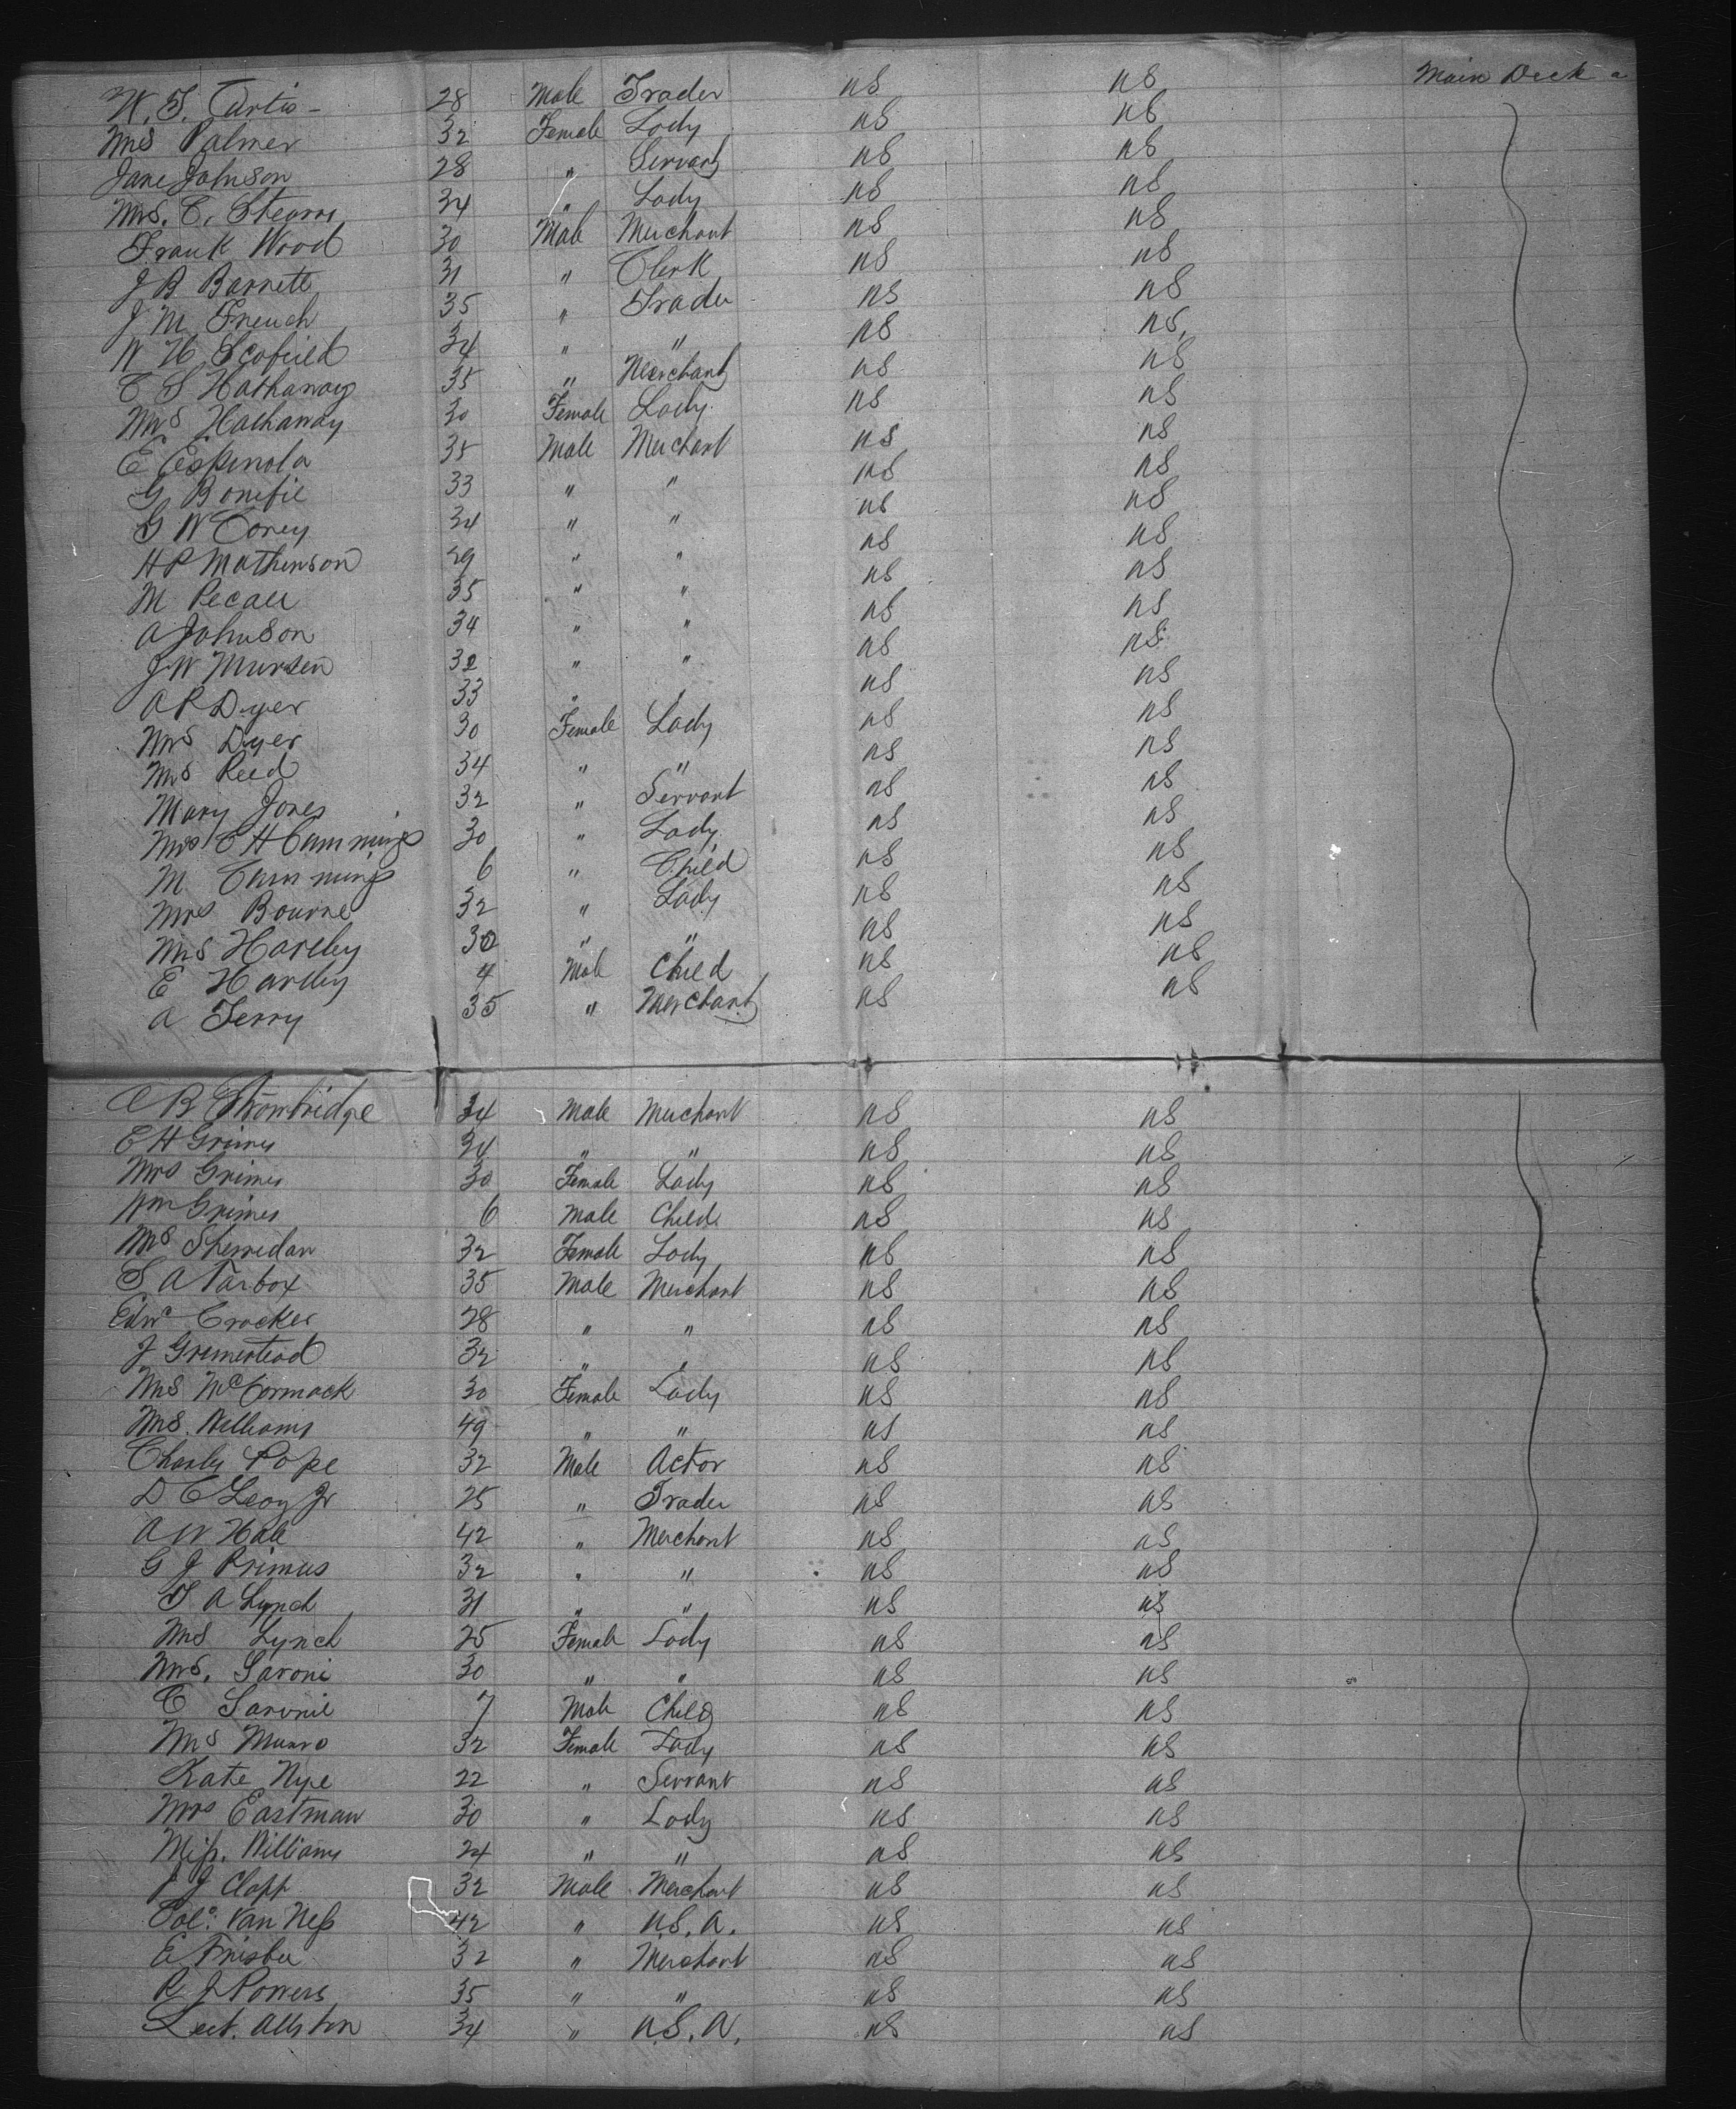 Main Deck
W. F. Curtis - 28 Male Trader US US
Mrs Palmer 32 Female Lady US US
Jane Johnson 28 " Servant US US
Mrs. C. Stearns 34 " Lady US US
Frank Wood 30 Male Merchant US US
J B Barrett 31 " Clerk US US
J M French 35 " Trader US US
W H Scofield 34 " " US US
C S Hathaway 35 " Merchant US US
Mrs Hathaway 30 Female Lady US US
E Espinola 35 Male Merchant US US
G Bonefil 33 " " US US
G W Corey 34 " " US US
H P Mathewson 29 " " US US
M 35 " " US US
A Johnson 34 " " US US
J W Mursen 32 " " US US
A P Dyer 33 " " US US
Mrs Dyer 30 Female Lady US US
Mrs Reed 34 " " US US
Mary Jones 32 " Servant US US
Mrs C H Cummings 30 " Lady US US
M Cummings 6 " Child US US
Mrs Bourne 32 " Lady US US
Mrs Hartley 30 " " US US
E Hartley 4 Male Child US US
A Terry 35 " Merchant US US
C B Strowbridge 34 Male Merchant US US
C H Grimes 34 " " US US
Mrs Grimes 30 Female Lady US US
Wm Grimes 6 Male Child US US
Mrs Sherridan 32 Female Lady US US
S A Tarbox 35 Male Merchant US US
Edwd Crocker 28 " " US US
J Grimestead 32 " " US US
Mrs McCormack 30 Female Lady US US
Mrs. Williams 49 " " US US
Charles Pope 32 Male Actor US US
D C Leoy Jr 25 " Trader US US
A W Hale 42 " Merchant US US
G J Primus 32 " " US US
T A Lynch 31 " " US US
Mrs Lynch 25 Female Lady US US
Mrs. Saroni 30 " " US US
C Saronie 7 Male Child US US
Mrs Munro 32 Female Lady US US
Kate Nye 22 " Servant US US
Mrs Eastman 30 " Lady US US
Miss. Williams 24 " " US US
J J Clapp 32 Male Merchant US US
Colo. Van Ness 42 " U.S.A. US US
E Frisbee 32 " Merchant US US
R J Powers 35 " " US US
Leut. Allston 34 " U.S.A. US US